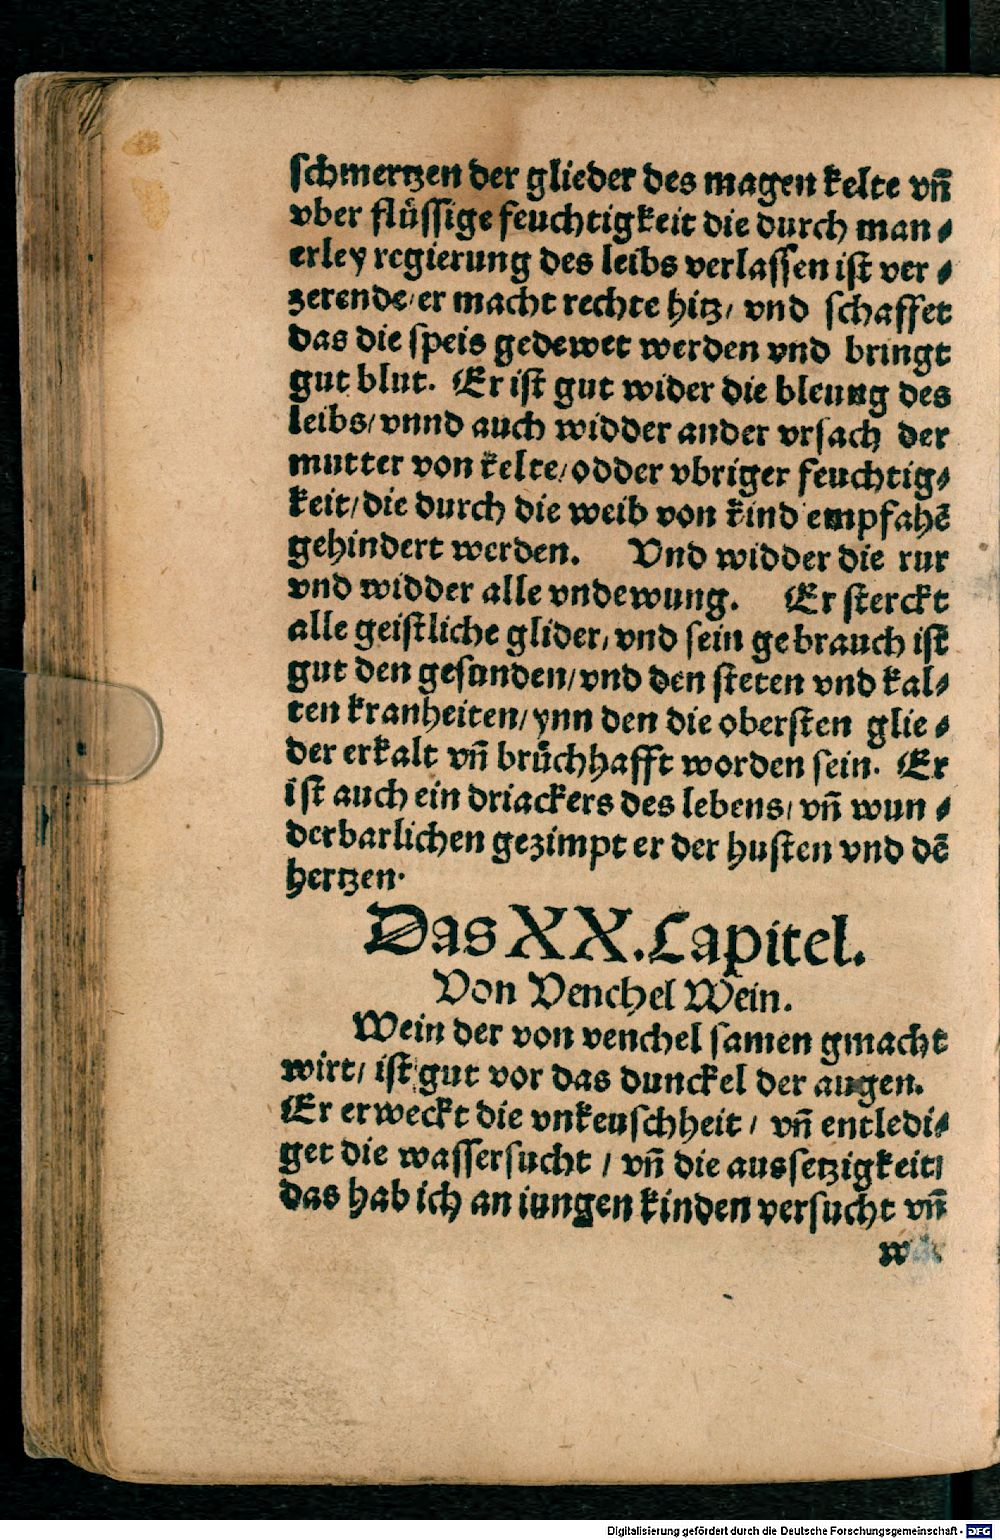 schmertzen der glieder des magen kelte vñ
vber flüssige feuchtigkeit die durch man⸗
erley regierung des leibs verlassen ist ver⸗
zerende/ er macht rechte hitz/ vnd schaffet
das die speis gedewet werden vnd bringt
gut blut. Er ist gut wider die bleung des
leibs/ vnnd auch widder ander vrsach der
mutter von kelte/ odder vbriger feuchtig⸗
keit/ die durch die weib von kind empfahẽ
gehindert werden. Vnd widder die rur
vnd widder alle vndewung. Er sterckt
alle geistliche glider/ vnd sein gebrauch ist
gut den gesunden/ vnd den steten vnd kal⸗
ten kranheiten/ ynn den die obersten glie⸗
der erkalt vñ brüchhafft worden sein. Er
ist auch ein driackers des lebens/ vñ wun⸗
derbarlichen gezimpt er der husten vnd dẽ
hertzen.
Das XX. Capitel.
Von Venchel Wein.
Wein der von venchel samen gmacht
wirt/ ist gut vor das dunckel der augen.
Er erweckt die vnkeuschheit/ vñ entledi⸗
get die wassersucht/ vñ die aussetzigkeit/
das hab ich an iungen kinden versucht vñ
Digitalisierung gefördert durch die Deutsche Forschungsgemeinschaft - DFG